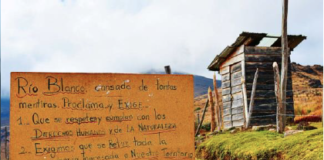 Río Blanco, cansado de tantas
mentiras. Proclama y Exige.
1. Que se respeten y cumplan con los
Derechos Humanos y de la Naturaleza
2. Exigimos que se
a Nuestro Territorio